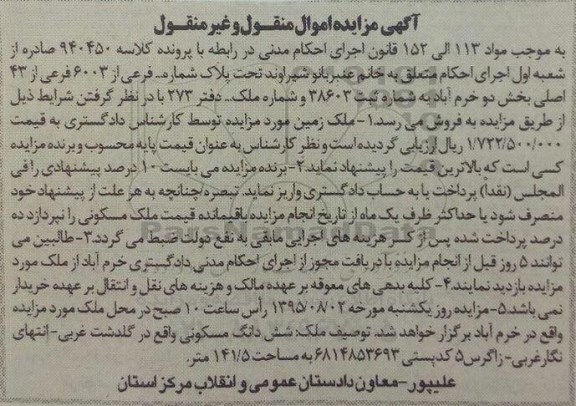 آگهی مزایده اموال منقول و غیر منقول
به موجب مواد ۱۱۳ الی ۱۵۲ قانون اجرای احکام مدنی در رابطه با پرونده کلاسه ۹۴۰۴۵۰ صادره از
شعبه اول اجرای احکام متعلق به خانم عنبربانو شهراوند تحت پلاک شماره... فرعی از ۶۰۰۳ فرعی از ۴۳
اصلی بخش دو خرم آباد به شماره ثبت ۳۸۶۰۳ و شماره ملک... دفتر ۲۷۳ با در نظر گرفتن شرایط ذیل
از طریق مزایده به فروش می رسد. ۱-ملک زمین مورد مزایده توسط کارشناس دادگستری به قیمت
۱/۷۲۲/۵۰۰/۰۰۰ ریال ارزیابی گردیده است و نظر کارشناس به عنوان قیمت پایه محسوب و برنده مزایده
کسی است که بالاترین قیمت را پیشنهاد نماید. ۲-برنده مزایده می بایست ۱۰ درصد پیشنهادی را فی
المجلس (نقداً) پرداخت یا به حساب دادگستری واریز نماید. تبصره: چنانچه به هر علت از پیشنهاد خود
منصرف شود یا حداکثر ظرف یک ماه از تاریخ انجام مزایده باقیمانده قیمت ملک مسکونی را نپردازد ده
درصد پرداخت شده پس از کسر هزینه های اجرایی مابقی به نفع دولت ضبط می گردد. ۳-طالبین می
توانند ۵ روز قبل از انجام مزایده با دریافت مجوز از اجرای احکام مدنی دادگستری خرم آباد از ملک مورد
مزایده بازدید نمایند. ۴-کلیه بدهی های معوقه بر عهده مالک و هزینه های نقل و انتقال بر عهده خریدار
نمی باشد. ۵-مزایده روز یکشنبه مورخه ۱۳۹۵/۰۸/۰۲ رأس ساعت ۱۰ صبح در محل ملک مورد مزایده
واقع در خرم آباد برگزار خواهد شد. توصیف ملک: شش دانگ مسکونی واقع در گلدشت غربی-انتهای
نگار غربی-زاگرس۵ کدپستی ۶۸۱۴۸۵۳۶۹۳ به مساحت ۱۴۱/۵ متر.
علیپور-معاون دادستان عمومی و انقلاب مرکز استان
ParsNamadData